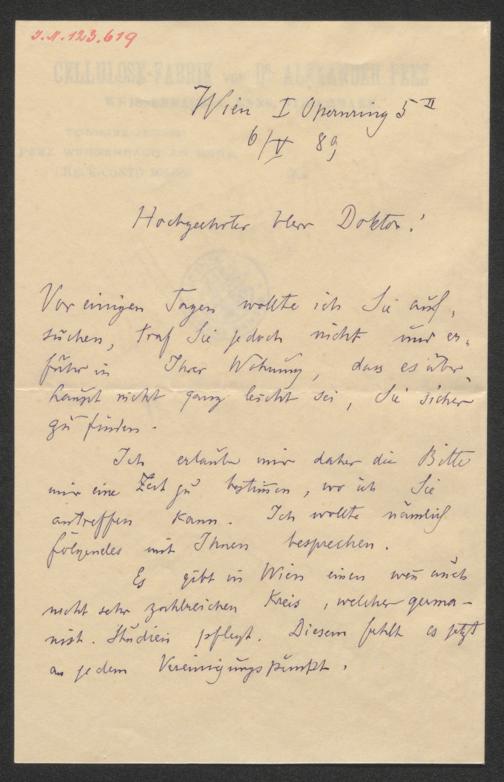 J.N. 123.619
CELLULOSE-FABRIK VON DR ALEXANDER PEEZ
Wien I Opernring 5 II
6/V 89
Hochgeehrter Herr Doktor!
Vor einigen Tagen wollte ich Sie auf-
suchen, traf Sie jedoch nicht und er-
fuhr in Ihrer Wohnung, dass es über
haupt nicht ganz leicht sei, Sie sicher
zu finden.
Ich erlaube mir daher die Bitte
mir eine Zeit zu bestimmen, wo ich Sie
antreffen kann. Ich wollte nämlich
folgendes mit Ihnen besprechen.
Es gibt in Wien einen wen auch
nicht sehr zahlreichen Kreis, welcher germa-
nist. Studien pflegt. Diesem fehlt es jetzt
an jedem Vereinigungspunkt.